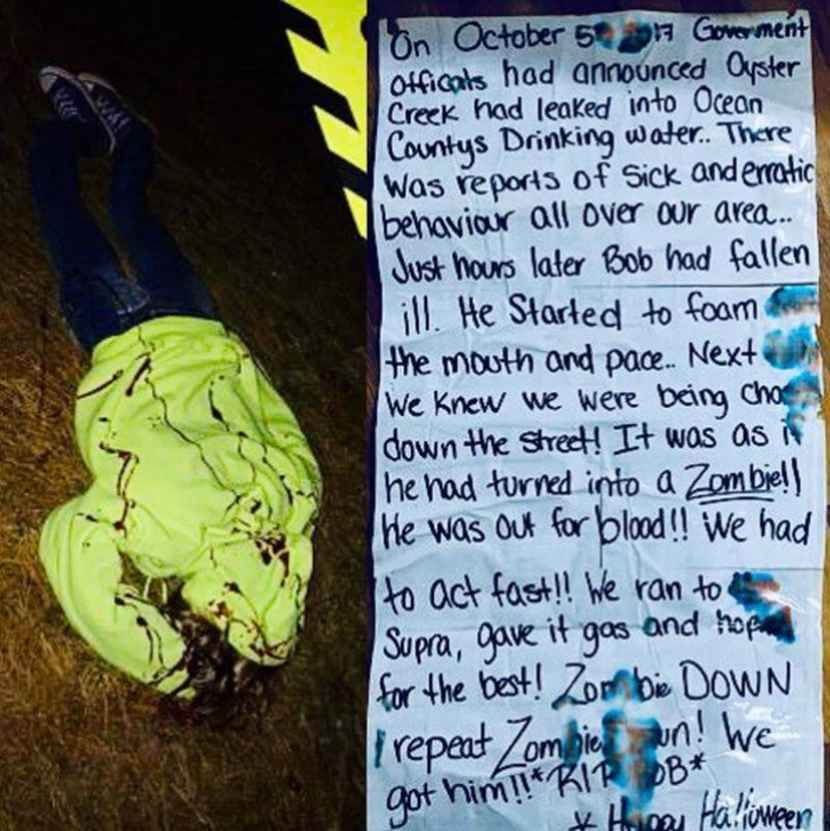 On October 5 17 Goverment
Officals had announced Oyster
Creek had leaked into Ocean
Countys Drinking water.. There
Was reports of Sick and erratic
behaviour all over our area..
Just hours later Bob had fallen
ill. He Started to foam
the mouth and pace.. Next
We Knew we were being
down the street! It was as if
he had turned into a Zombie!!
He was out for blood!! We had
to act fast!! We ran to
Supra, gave it gas and
for the best! Zombie DOWN
I repeat Zombie ! We
got him!! *RIP BOB*
* Happy Halloween